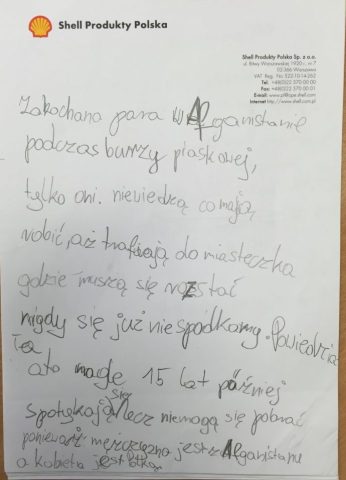 Shell Produkty Polska
Shell Produkty Polska Sp. z o.o.
ul. Bitwy Warszawskiej 1920 r., nr 7
02-366 Warszawa
VAT Reg. No 522-10-14-262
Tel. +48(0)22 570 00 00
Fax: +48(0)22 570 00 01
Internet http://www.shell.com.pl
Zakochana para w Afganistanie
podczas burzy piaskowej,
tylko oni. niewiedzą co mają
robić, aż trafiają do miasteczka
gdzie muszą się rozstać
nigdy się już nie spodkamy. Powiedzia
ła
a to nagle 15 lat później
spotykają się lecz niemogą się pobrać
ponieważ mężczyzna jest z Afganistanu
a kobieta jest